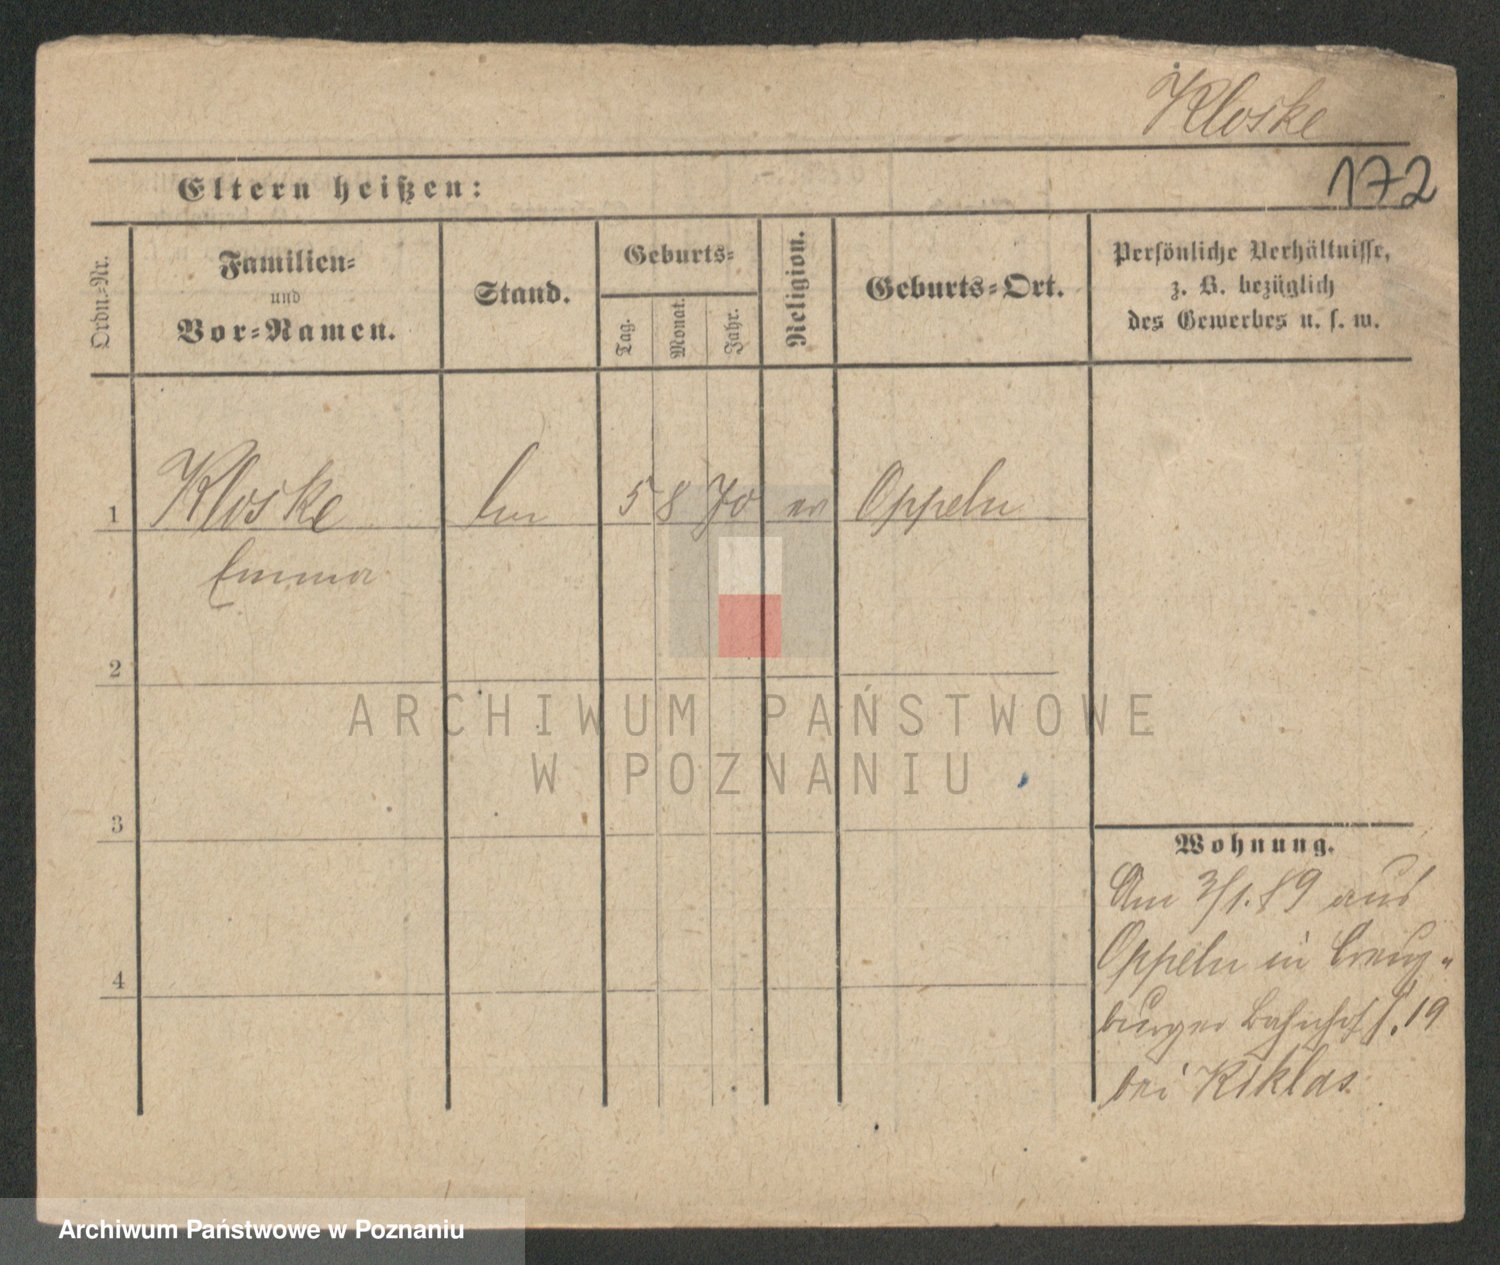 Kloske
172
Eltern heißen:
Ordn.-Nr.
Familien-
und
Vor-Namen.
Stand.
Geburts-
Tag.
Monat.
Jahr.
Religion.
Geburts-Ort.
Persönliche Verhältnisse,
z. B. bezüglich
des Gewerbes u. s. w.
1 Kloske 5 8 70 ev Oppeln
Emma
2
3
4
Wohnung.
Am 3/1.89 aus
Oppeln in Creuz-
burger Bahnhof 19
bei Kiklas.
ARCHIWUM PAŃSTWOWE
W POZNANIU
Archiwum Państwowe w Poznaniu